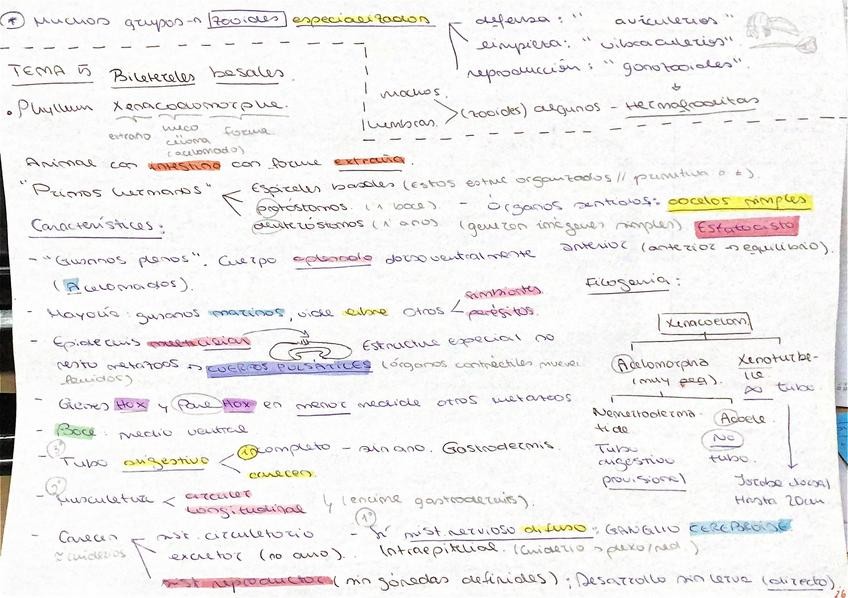 * Muchos grupos → zooides especializados
defensa: "avicularios"
limpieza: "vibracularios".
reproducción: "gonozooides".
machos.
hembras. > (zooides) algunos - Hermafroditas
TEMA 15 Bilaterales basales.
• Phyllum Xenacoelomorpha.
extraño hueco celoma (acelomado) forma
Animal con intestino con forma extraña.
"Primos hermanos" < Espirales basales (Estos estme organizados // primitiva o ±).
protóstomos. (1º boca).
deuteróstomos (1º ano)
- órganos sentidos: ocelos simples
(generan imágenes simples) Estatocisto
anterior (anterior → equilibrio).
Características:
- "Gusanos planos". Cuerpo aplanado dorsoventralmente
(Acelomados).
- Mayoría: gusanos marinos, vida libre otros < simbiontes
parásitos.
- Epidermis multiciliar
Estructura especial no
resto metazoos → CUERPOS PULSÁTILES (órganos contráctiles mueven
fluidos)
- Genes Hox y Para Hox en menor medida otros metazoos
- Boca: medio ventral
3º
- Tubo digestivo < incompleto - sin ano. Gastrodermis.
carecen
2º
- Musculatura < circular
longitudinal
↳ (encima gastrodermis).
- Carecen
≈ cnidarios
sist. circulatorio
excretor (no ano).
sist reproductor (sin gónadas definidas); Desarrollo sin larva (directo).
1º
- Sí sist. nervioso difuso: GANGLIO CEREBROIDE
Intraepitelial. (cnidario → plexo/red.)
Filogenia:
Xenacoelom
Acelomorpha
(muy peq).
Xenoturbe-
lla
tubo.
Nemertoderma-
tida
Tubo
digestivo
provisional
Acoela.
No
tubo.
dorsal
Hasta 20cm
26